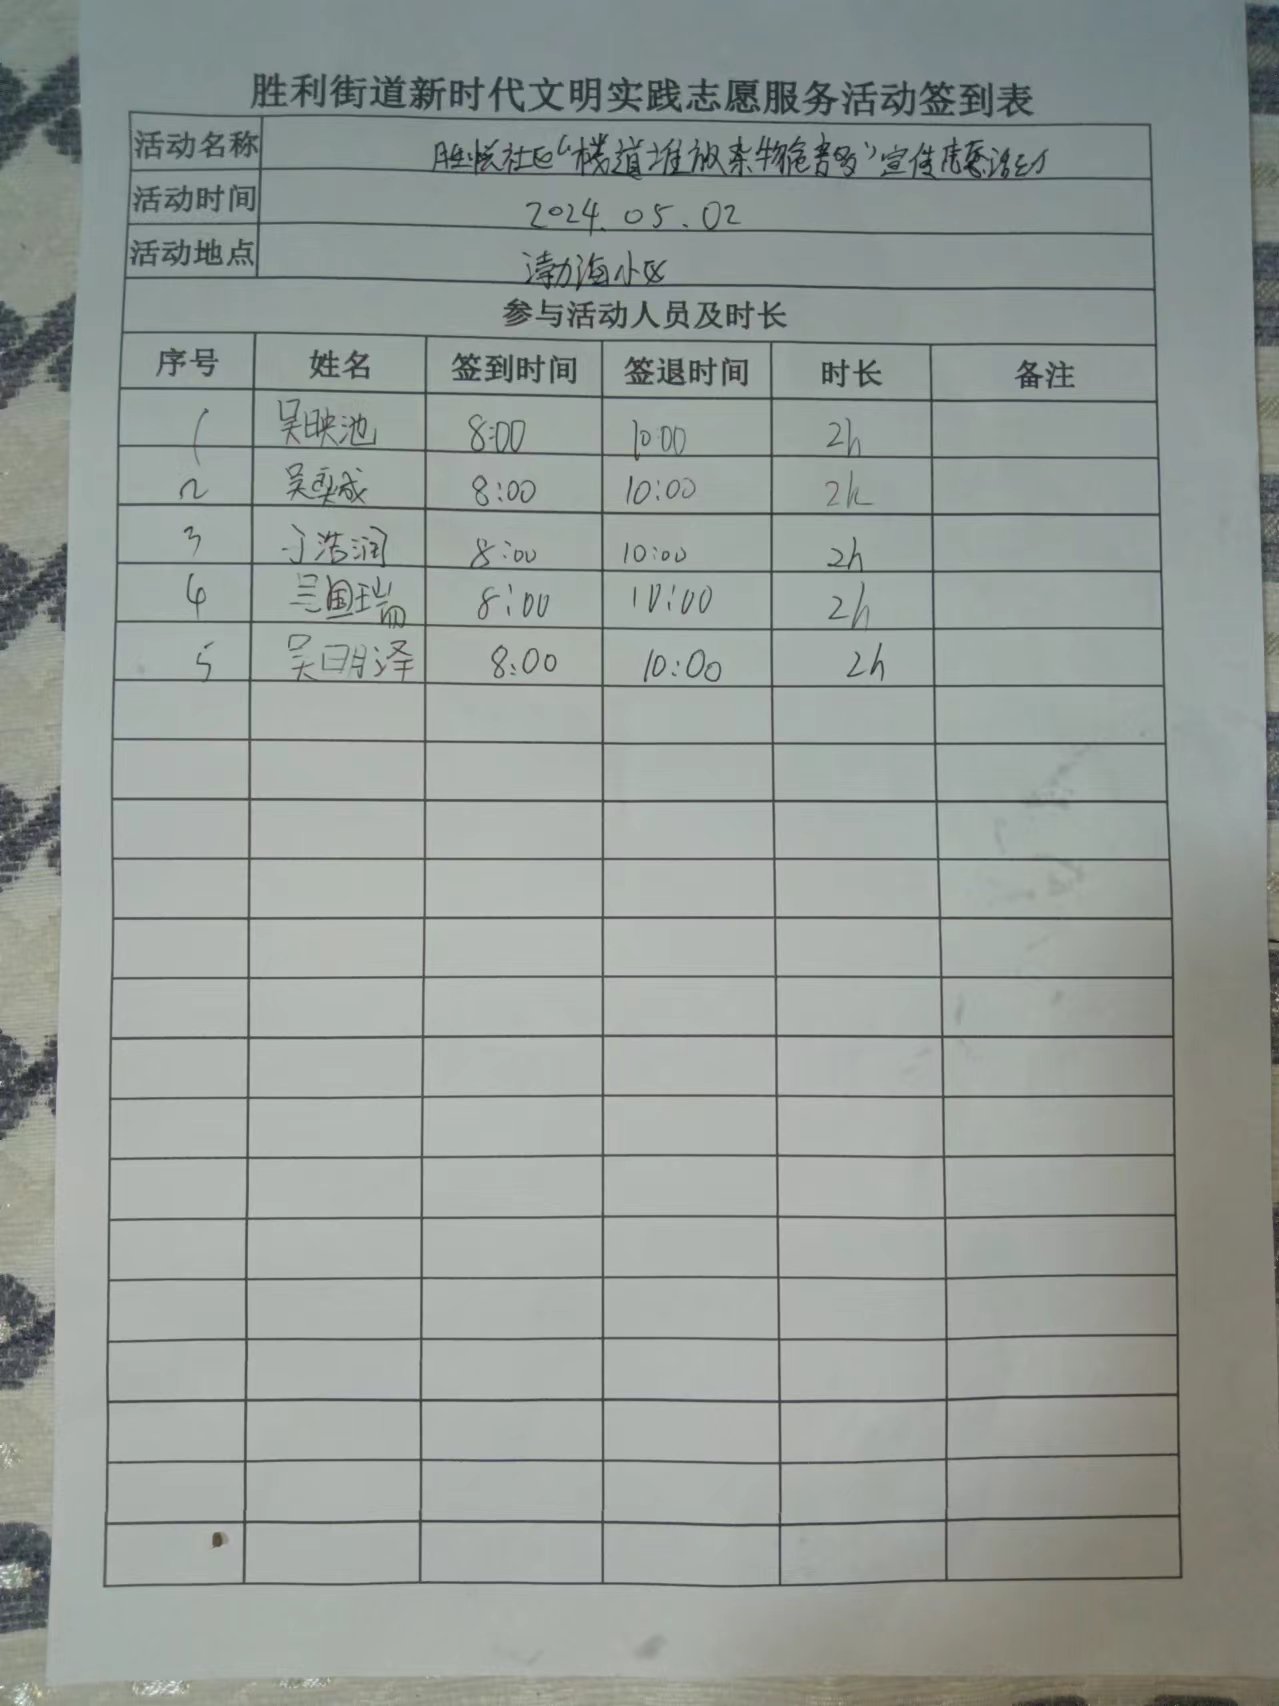 胜利街道新时代文明实践志愿服务活动签到表
活动名称 胜悦社区“楼道堆放杂物危害多”宣传志愿活动
活动时间 2024.05.02
活动地点 渤海小区
参与活动人员及时长
序号 姓名 签到时间 签退时间 时长 备注
1 吴映池 8:00 10:00 2h
2 吴奕成 8:00 10:00 2h
3 于浩润 8:00 10:00 2h
4 吴国瑞 8:00 10:00 2h
5 吴明泽 8:00 10:00 2h